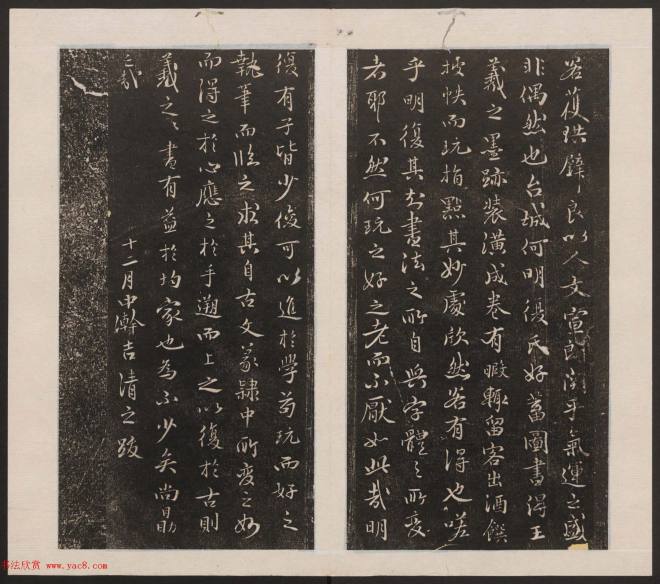 若獲珙璧良以人文宣朗關乎氣運之盛
非偶然也台城何明復氏好蓄圖書得王
羲之墨跡裝潢成卷有暇輒留客出酒饌
披帙而玩指點其妙處欣然若有得也嗟
乎明復其知畫法之所自與字體之所變
者耶不然何玩之好之老而不厭如此哉明
復有子皆少俊可以進於學苟玩而好之
執筆而臨之求其自古文篆隸中所變之妙
而得之於心應之於手遡而上之以復於古則
羲之之書有益於均家也為不少矣尚勗
之哉
十二月中澣吉清之跋
书法欣赏 www.yac8.com